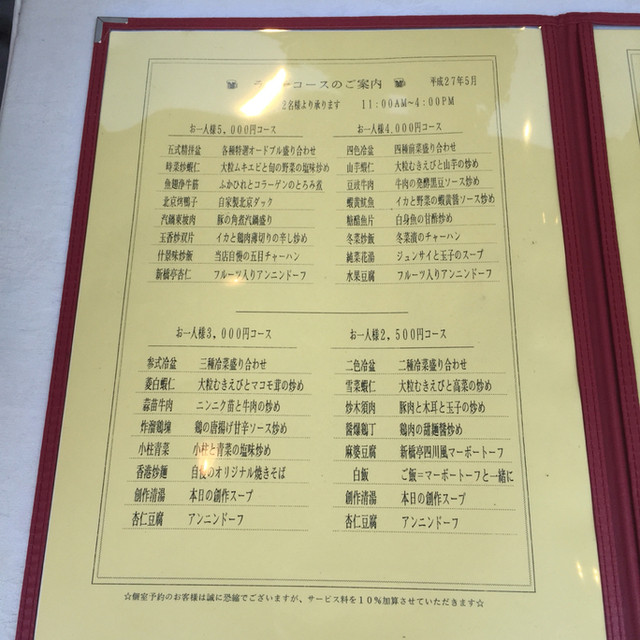 コースのご案内 平成27年5月
2名様より承ります 11:00AM~4:00PM
お一人様5,000円コース
五式精拼盆 各種特選オードブル盛り合わせ
時菜炒蝦仁 大粒ムキエビと旬の野菜の塩味炒め
魚翅浄牛筋 ふかひれとコラーゲンのとろみ煮
北京烤鴨子 自家製北京ダック
汽鍋東坡肉 豚の角煮汽鍋盛り
玉香炒双片 イカと鶏肉薄切りの辛し炒め
什景味炒飯 当店自慢の五目チャーハン
新橋亭杏仁 フルーツ入りアンニンドーフ
お一人様4,000円コース
四色冷盆 四種前菜盛り合わせ
山芋蝦仁 大粒むきえびと山芋の炒め
豆豉牛肉 牛肉の発酵黒豆ソース炒め
蝦黄魷魚 イカと野菜の蝦黄醤ソース炒め
糖醋魚片 白身魚の甘酢炒め
冬菜炒飯 冬菜漬のチャーハン
純菜花湯 ジュンサイと玉子のスープ
水果豆腐 フルーツ入りアンニンドーフ
お一人様3,000円コース
参式冷盆 三種冷菜盛り合わせ
茭白蝦仁 大粒むきえびとマコモ茸の炒め
蒜苗牛肉 ニンニク苗と牛肉の炒め
炸溜鶏塊 鶏の唐揚げ甘辛ソース炒め
小柱青菜 小柱と青菜の塩味炒め
香港炒麺 自慢のオリジナル焼きそば
創作清湯 本日の創作スープ
杏仁豆腐 アンニンドーフ
お一人様2,500円コース
二色冷盆 二種冷菜盛り合わせ
雪菜蝦仁 大粒むきえびと高菜の炒め
炒木須肉 豚肉と木耳と玉子の炒め
醤爆鶏丁 鶏肉の甜麺醤炒め
麻婆豆腐 新橋亭四川風マーボートーフ
白飯 ご飯=マーボートーフと一緒に
創作清湯 本日の創作スープ
杏仁豆腐 アンニンドーフ
☆個室予約のお客様は誠に恐縮でございますが、サービス料を10%加算させていただきます☆